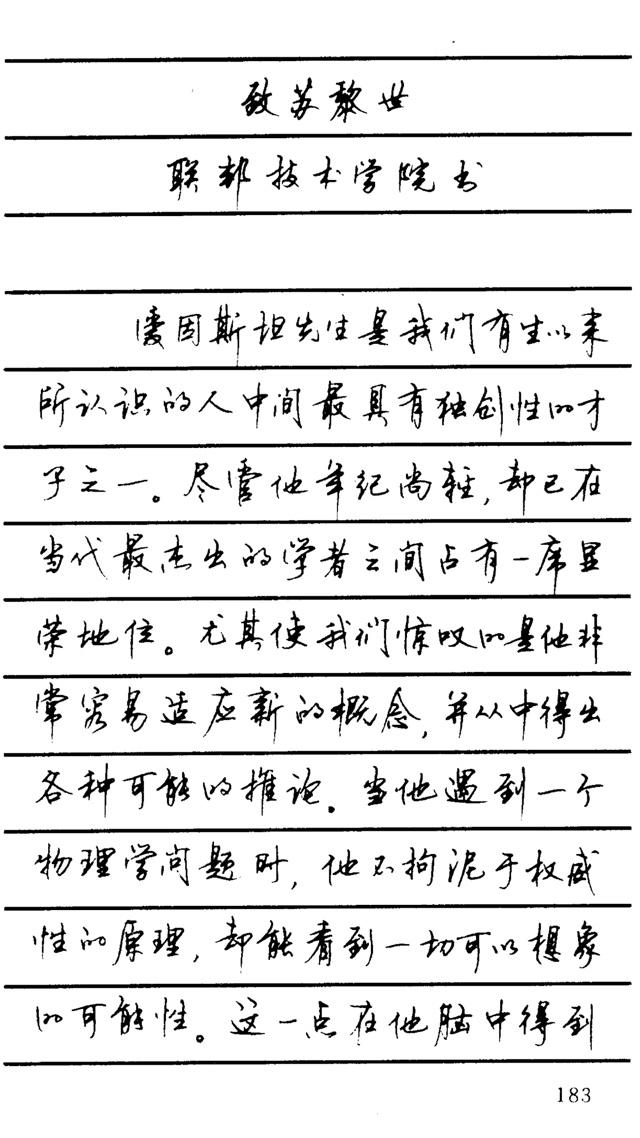 致苏黎世
联邦技术学院书
爱因斯坦先生是我们有生以来
所认识的人中间最具有独创性的才
子之一。尽管他年纪尚轻，却已在
当代最杰出的学者之间占有一席显
荣地位。尤其使我们惊叹的是他非
常容易适应新的概念，并从中得出
各种可能的推论。当他遇到一个
物理学问题时，他不拘泥于权威
性的原理，却能看到一切可以想象
的可能性。这一点在他脑中得到
183